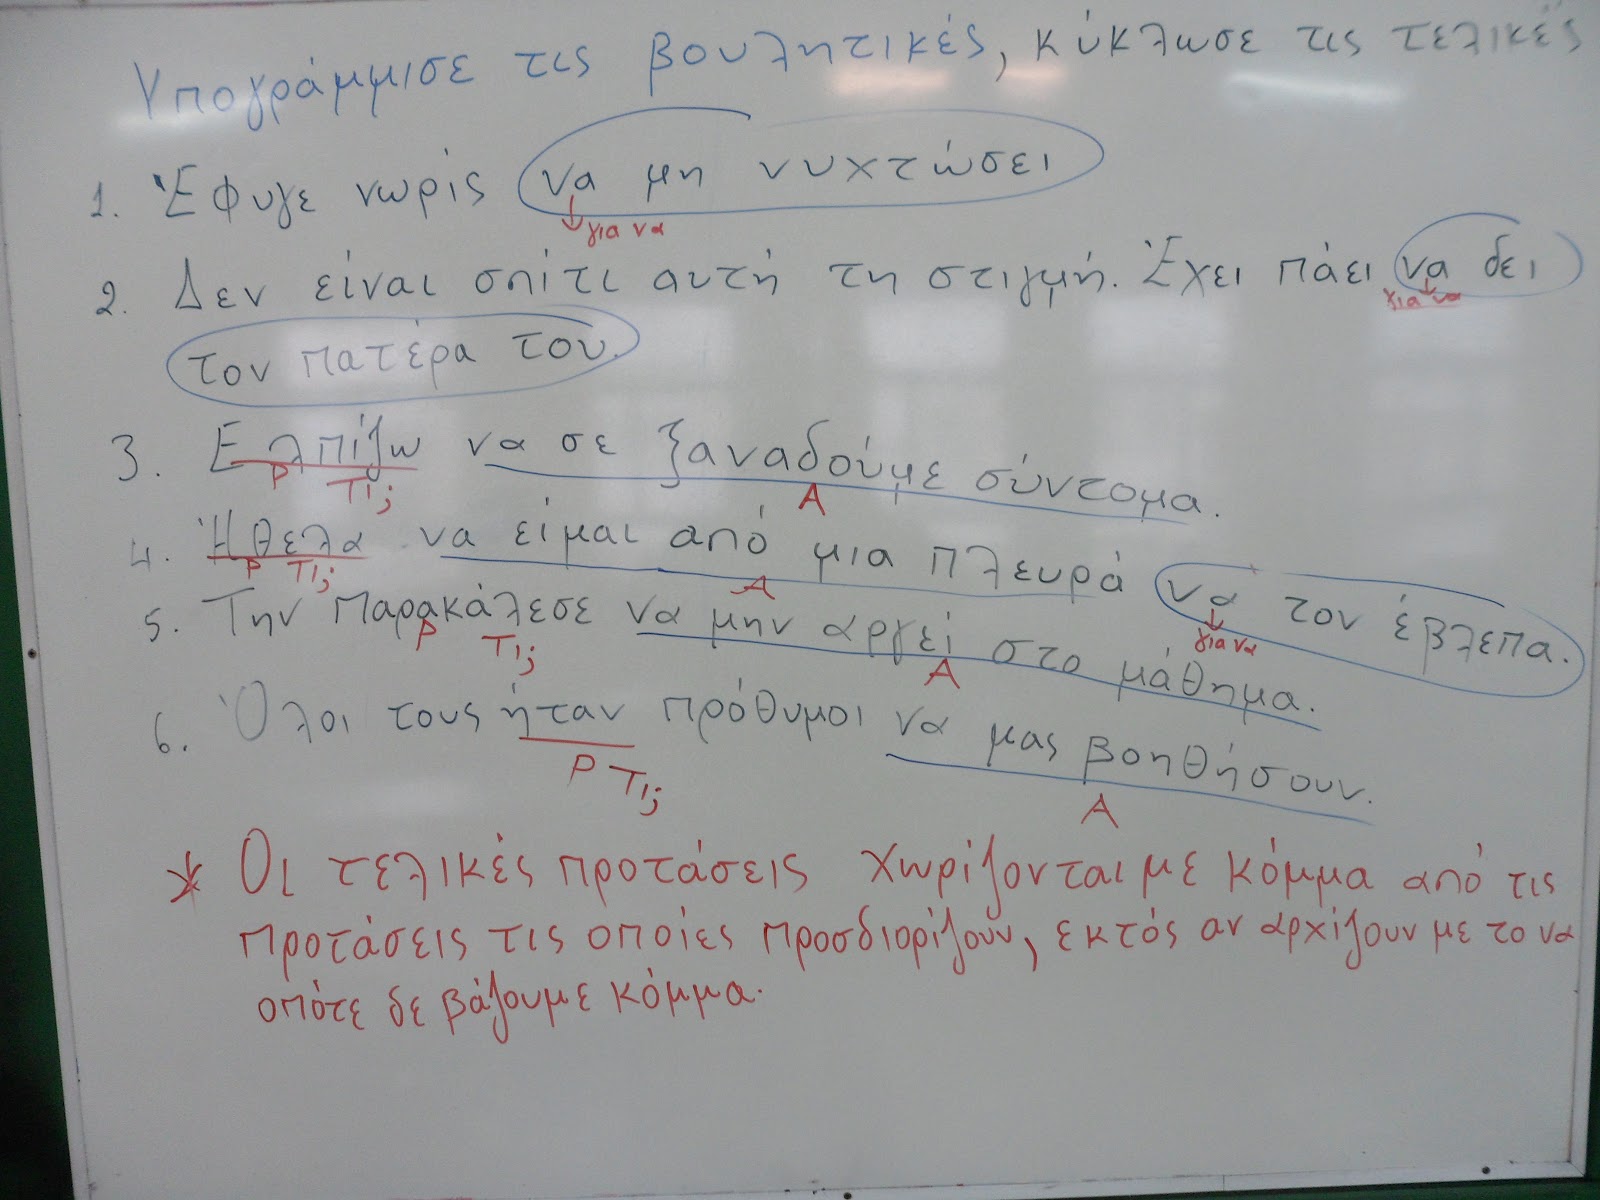 Υπογράμμισε τις βουλητικές, κύκλωσε τις τελικές
1. Έφυγε νωρίς να μη νυχτώσει
για να
2. Δεν είναι σπίτι αυτή τη στιγμή. Έχει πάει να δει
για να
τον πατέρα του.
3. Ελπίζω να σε ξαναδούμε σύντομα.
Ρ Τι; Α
4. Ήθελα να είμαι από μια πλευρά να τον έβλεπα.
Ρ Τι; Α για να
5. Την παρακάλεσε να μην αργεί στο μάθημα.
Ρ Τι; Α
6. Όλοι τους ήταν πρόθυμοι να μας βοηθήσουν.
Ρ Τι; Α
* Οι τελικές προτάσεις χωρίζονται με κόμμα από τις
προτάσεις τις οποίες προσδιορίζουν, εκτός αν αρχίζουν με το να
οπότε δε βάζουμε κόμμα.